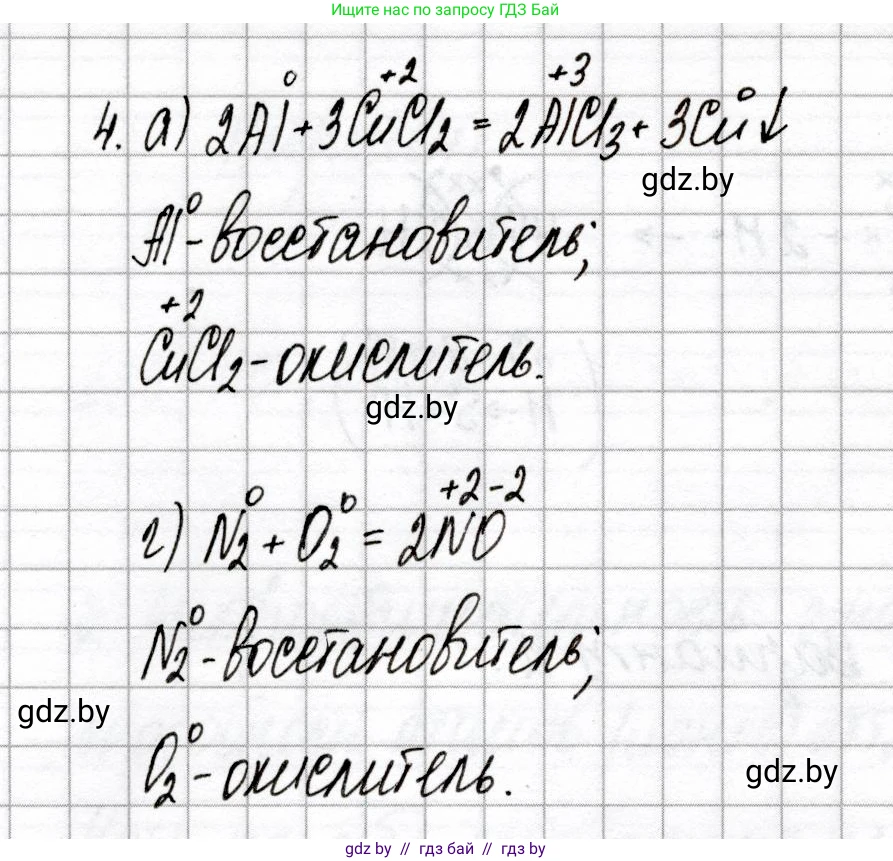 Ищите нас по запросу ГДЗ Бай
4. а) 2Al⁰ + 3Cu⁺²Cl₂ = 2Al⁺³Cl₃ + 3Cu⁰↓
gdz.by
Al⁰ - восстановитель;
Cu⁺²Cl₂ - окислитель.
gdz.by
г) N₂⁰ + O₂⁰ = 2N⁺²O⁻²
N₂⁰ - восстановитель;
gdz.by
O₂⁰ - окислитель.
gdz.by
gdz.by // гдз бай // gdz.by